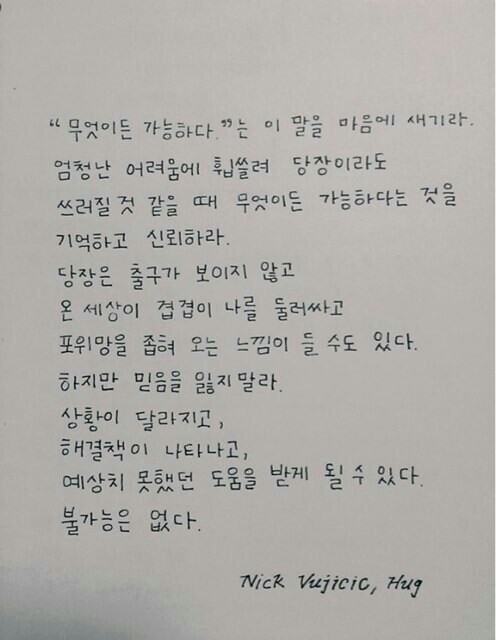 “무엇이든 가능하다.”는 이 말을 마음에 새기라.
엄청난 어려움에 휩쓸려 당장이라도
쓰러질 것 같을 때 무엇이든 가능하다는 것을
기억하고 신뢰하라.
당장은 출구가 보이지 않고
온 세상이 겹겹이 나를 둘러싸고
포위망을 좁혀 오는 느낌이 들 수도 있다.
하지만 믿음을 잃지 말라.
상황이 달라지고,
해결책이 나타나고,
예상치 못했던 도움을 받게 될 수 있다.
불가능은 없다.
Nick Vujicic, Hug